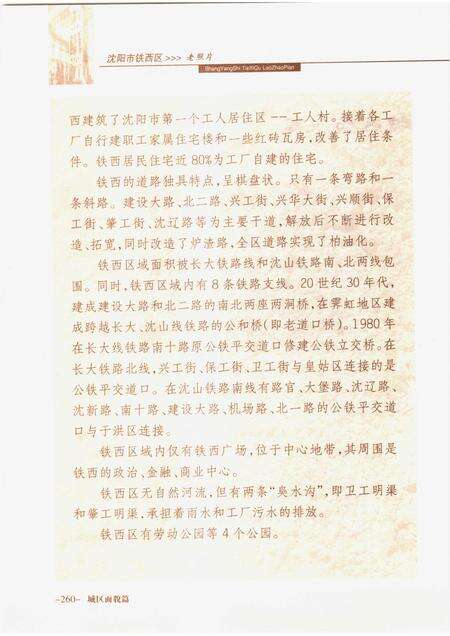 沈阳市铁西区>>> 老照片
ShenYangShi TieXiQu LaoZhaoPian
西建筑了沈阳市第一个工人居住区--工人村。接着各工
厂自行建职工家属住宅楼和一些红砖瓦房,改善了居住条
件。铁西居民住宅近80%为工厂自建的住宅。
铁西的道路独具特点,呈棋盘状。只有一条弯路和一
条斜路。建设大路、北二路、兴工街、兴华大街、兴顺街、保
工街、肇工街、沈辽路等为主要干道,解放后不断进行改
造、拓宽,同时改造了炉渣路,全区道路实现了柏油化。
铁西区域面积被长大铁路线和沈山铁路南、北两线包
围。同时,铁西区域内有8条铁路支线。20世纪30年代,
建成建设大路和北二路的南北两座两洞桥,在霁虹地区建
成跨越长大、沈山线铁路的公和桥(即老道口桥)。1980年
在长大线铁路南十路原公铁平交道口修建公铁立交桥。在
长大铁路北线,兴工街、保工街、卫工街与皇姑区连接的是
公铁平交道口。在沈山铁路南线有路官、大堡路、沈辽路、
沈新路、南十路、建设大路、机场路、北一路的公铁平交道
口与于洪区连接。
铁西区域内仅有铁西广场,位于中心地带,其周围是
铁西的政治、金融、商业中心。
铁西区无自然河流,但有两条“臭水沟”,即卫工明渠
和肇工明渠,承担着雨水和工厂污水的排放。
铁西区有劳动公园等4个公园。
-260- 城区面貌篇